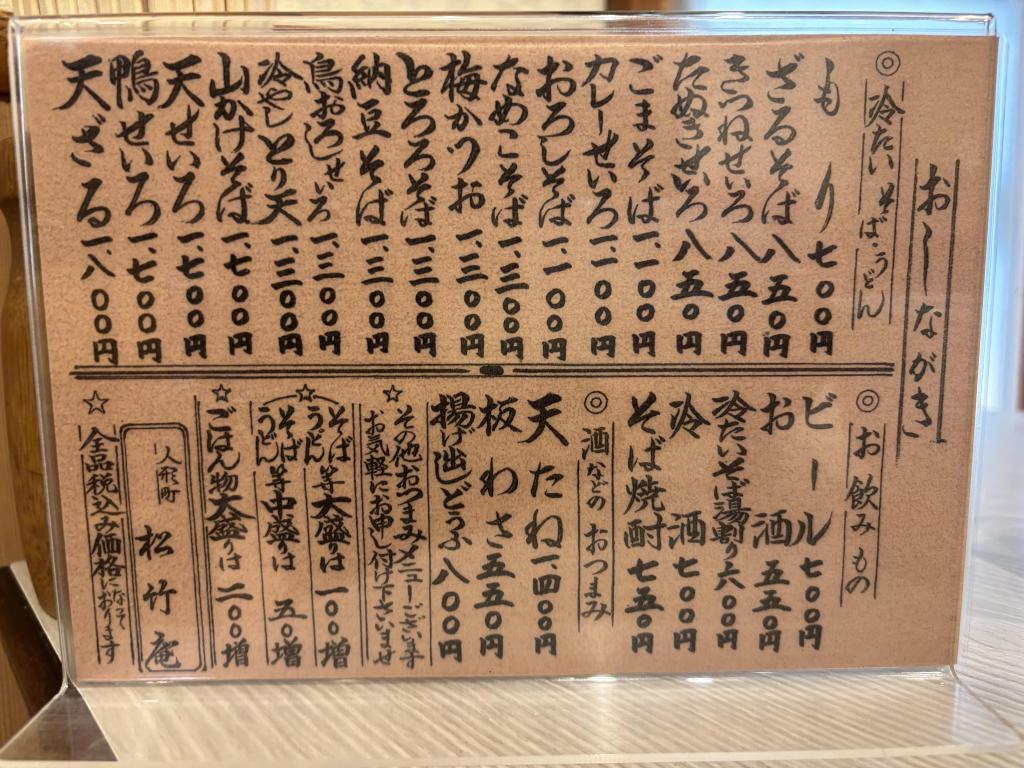 おしながき
◎冷たいそば・うどん
もり七〇〇円
ざるそば八五〇円
きつねせいろ八五〇円
たぬきせいろ八五〇円
ごまそば一、一〇〇円
カレーせいろ一、一〇〇円
おろしそば一、一〇〇円
なめこそば一、三〇〇円
梅かつお一、三〇〇円
とろろそば一、三〇〇円
納豆そば一、三〇〇円
鳥おろしせいろ一、三〇〇円
冷やしとり天一、三〇〇円
山かけそば一、七〇〇円
天せいろ一、七〇〇円
鴨せいろ一、七〇〇円
天ざる一、八〇〇円
◎お飲みもの
ビール七〇〇円
お酒五五〇円
冷たいそば湯割り六〇〇円
冷酒七〇〇円
そば焼酎七五〇円
◎酒などのおつまみ
天たね一、四〇〇円
板わさ五五〇円
揚げ出しどうふ八〇〇円
☆その他おつまみメニューございます
お気軽にお申し付け下さいませ
☆そばうどん等大盛りは一〇〇増
そばうどん等中盛りは五〇増
☆ごはん物大盛りは二〇〇増
人形町松竹庵
☆全品税込み価格になっております